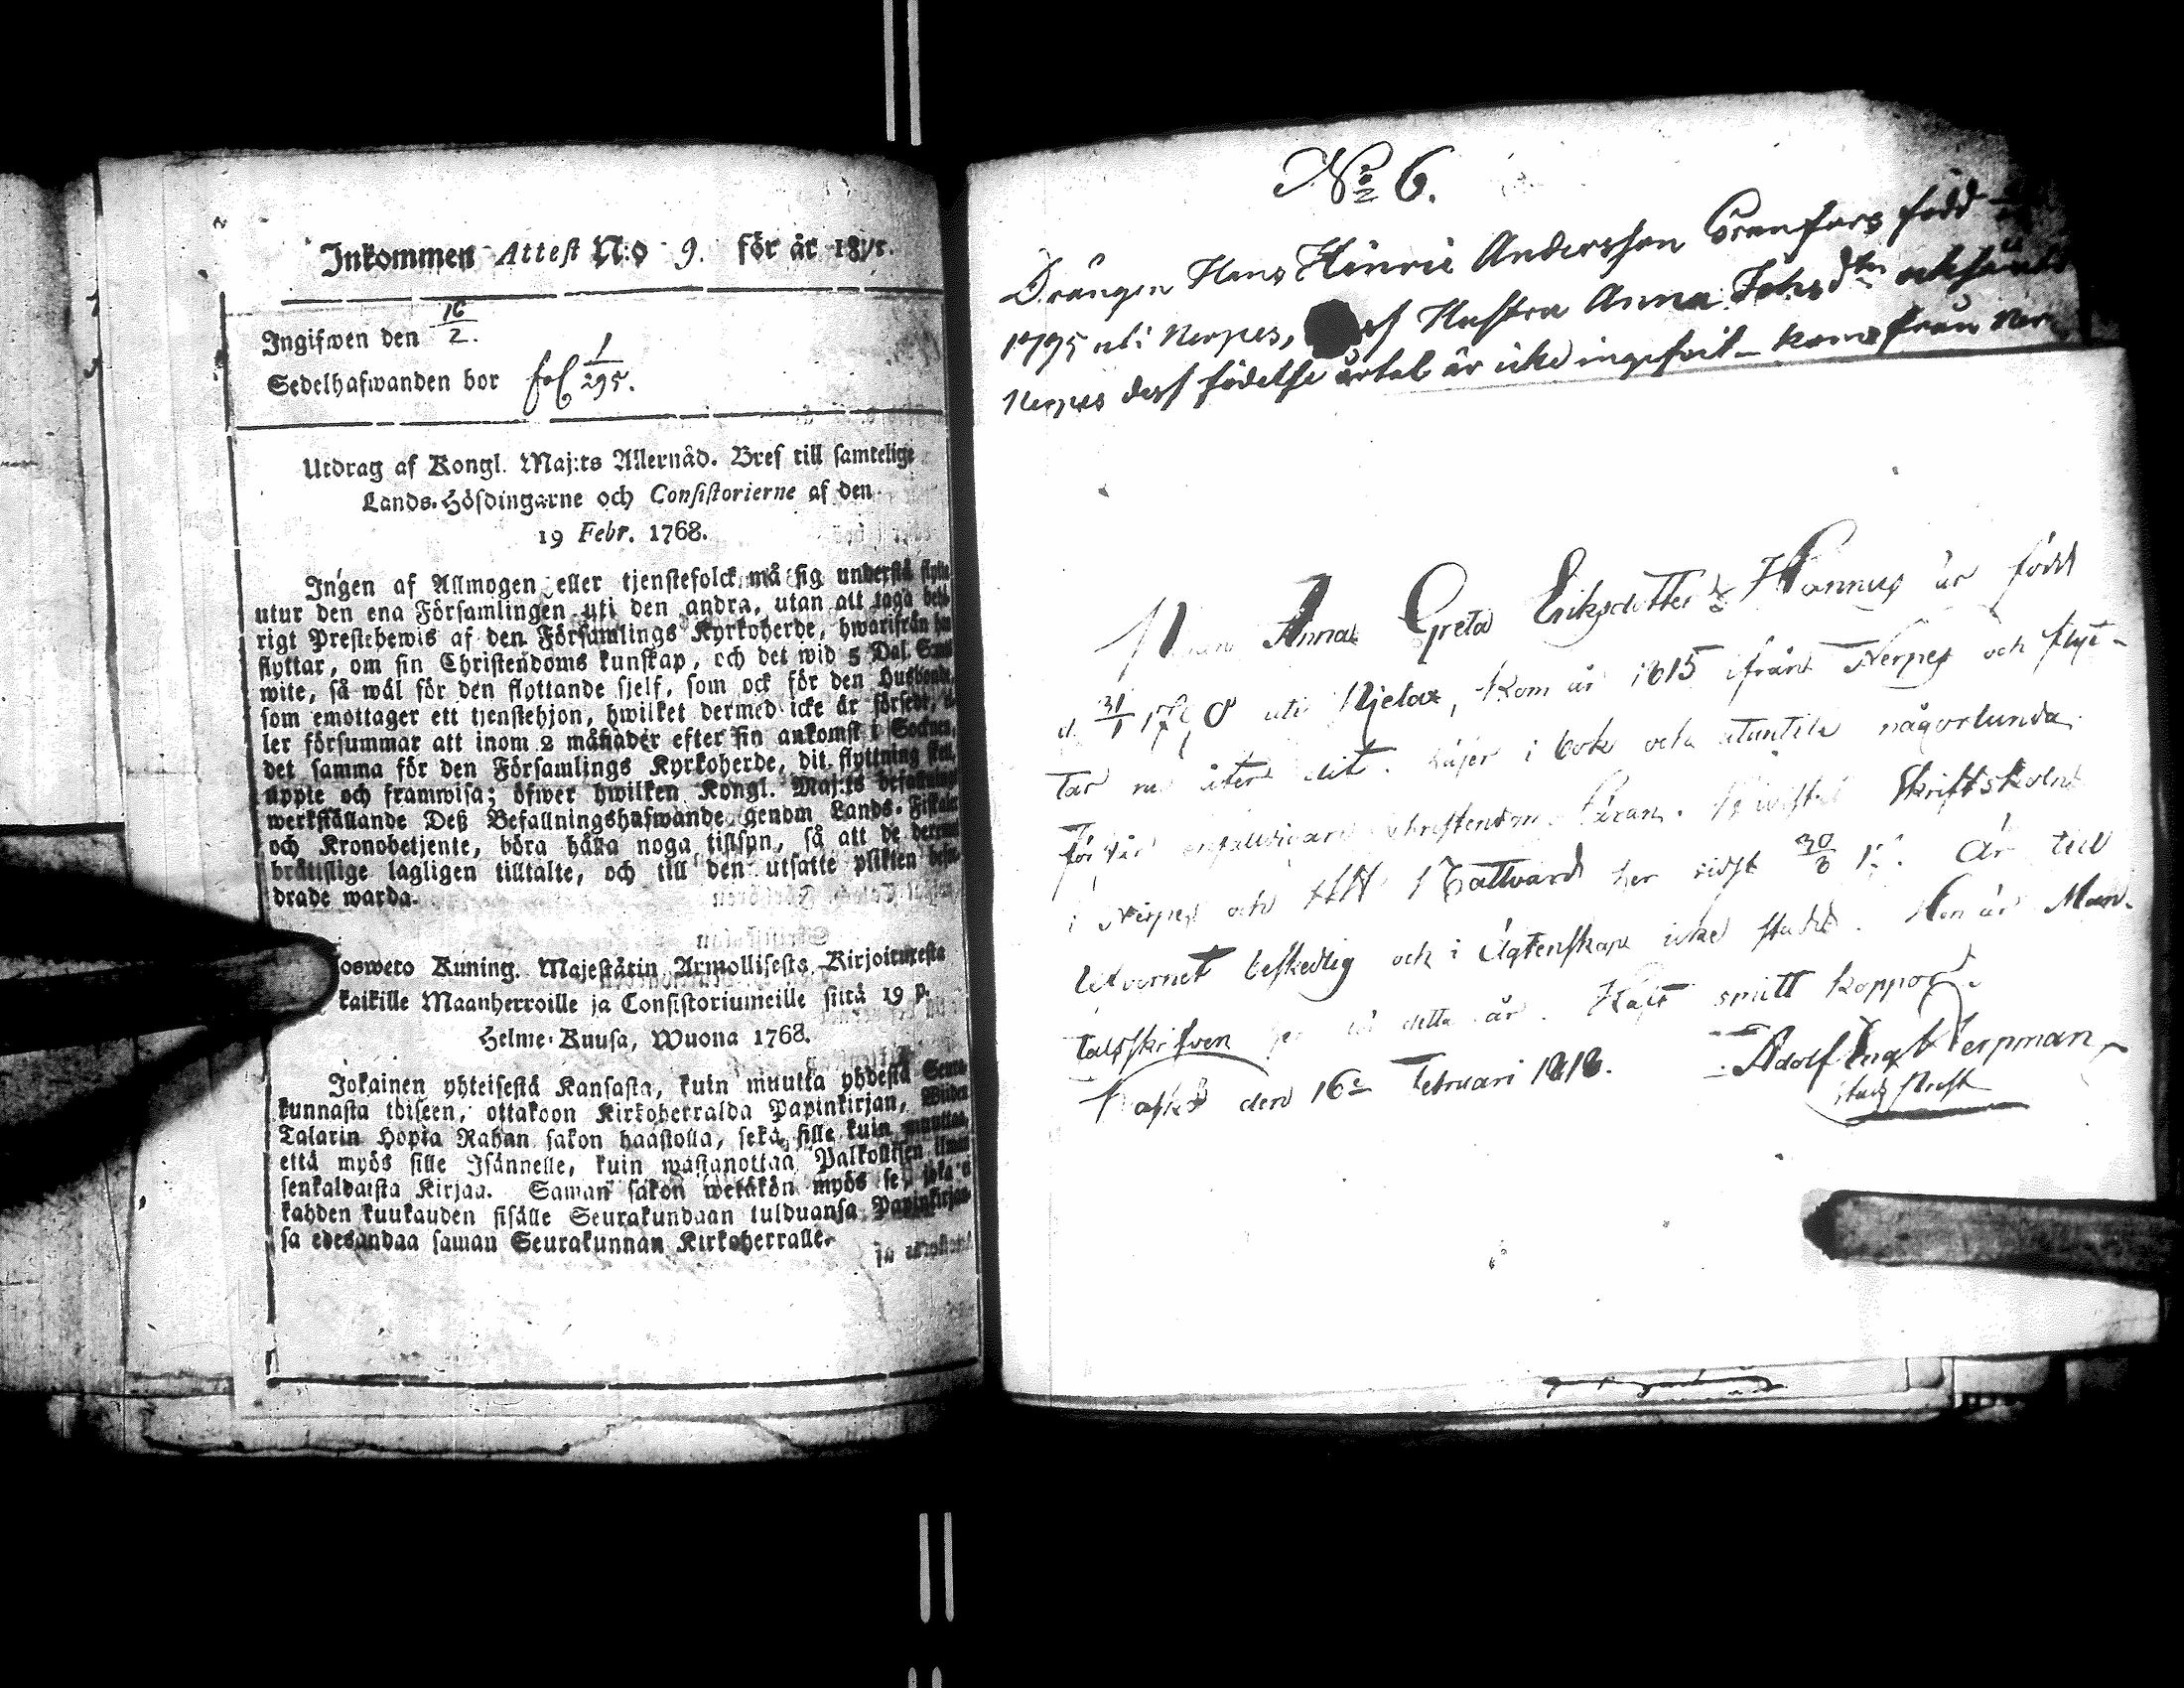 Inkommen Attest N:o 9. för år 181
Ingifwen den 16/2.
Sedelhafwanden bor fol 1/295.
Utdrag af Kongl. Maj:ts Allernåd. Bref till samtelige
Lands-Höfdingarne och Consistorierne af den
19 Febr. 1768.
Ingen af Allmogen eller tjenstefolck må sig understå flytta
utur den ena Församlingen uti den andra, utan att taga behö-
rigt Prestebewis af den Församlings Kyrkoherde, hwarifrån han
flyttar, om sin Christendoms kunskap, och det wid 5 Dal. Smt
wite, så wäl för den flyttande sjelf, som ock för den Husbonde,
som emottager ett tjenstehjon, hwilket dermed icke är försedt, el-
ler försummar att inom 2 månader efter sin ankomst i Socknen,
det samma för den Församlings Kyrkoherde, dit flyttning sket,
uppte och framwisa; öfwer hwilken Kongl. Maj:ts befallning
werkställande Deß Befallningshafwande genom Lands-Fiskaler
och Kronobetjente, böra hålla noga tillsyn, så att de deremot
bråttslige lagligen tilltalte, och till den utsatte plikten befor-
drade warda.
osweto Kuning. Majestätin Armollisesta Kirjoituxesta
kaikille Maanherroille ja Consistoriumeille siitä 19 p.
Helme-Kuusa, Wuona 1768.
Jokainen yhteisestä Kansasta, kuin muutta yhdestä Seura-
kunnasta toiseen, ottakoon Kirkoherralda Papinkirjan, Wiiden
Talarin Hopia Rahan sakon haastolla, sekä sille kuin muuttaa,
että myös sille Isännelle, kuin wastanottaa Palkollisen ilman
senkaldaista Kirjaa. Saman sakon wetäkön myös se, joka ei
kahden kuukauden sisälle Seurakundaan tulduansa Papinkirjan-
sa edesandaa saman Seurakunnan Kirkoherralle.
No 6.
Drängen Hans Hinric Andersson Granfors född
1795 uti Nerpes, Hustru Anna Johsdtr
Nerpes dess födelse årtal är icke ingefört – kom från Ner
Anna Greta Eriksdotter Hannus är född
d. 31/1 17 0 uti Njelax, kom år 1815 ifrån Nerpes och flyt-
tar nu åter dit. Läser i bok och utantile någorlunda.
förstår enfaldigare Christendoms Läran. Skriftskolan
i Nerpes och HH Nattvard her sidst 30/3 Är till
lefvernet beskedlig och i Ägtenskap icke städd. Hon är Man-
talsskrifven för detta år. Haft smitt koppor.
den 16e Februari 1818. Adolf Nerpman